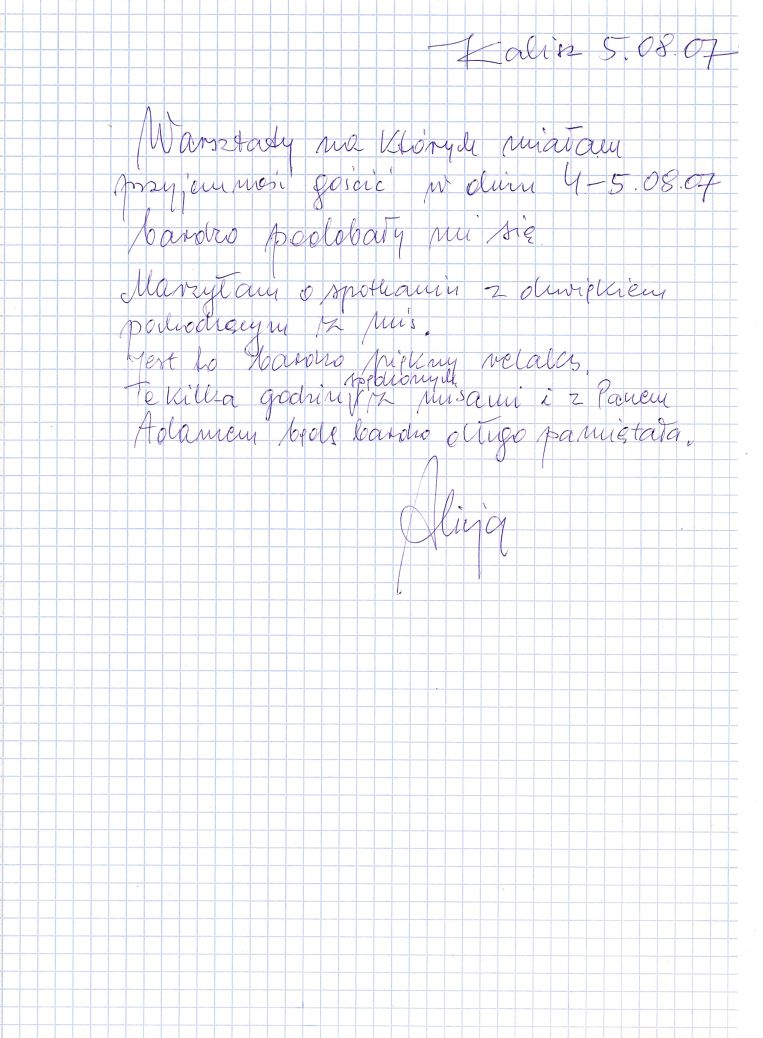 Kalisz 5.08.07
Warsztaty na których miałam
przyjemność gościć w dniu 4-5.08.07
bardzo podobały mi się
Marzyłam o spotkaniu z dźwiękiem
pochodzącym z mis.
Jest to bardzo piękny relaks.
Te kilka godzin spędzonych z misami i z Panem
Adamem będę bardzo długo pamiętała.
Alicja